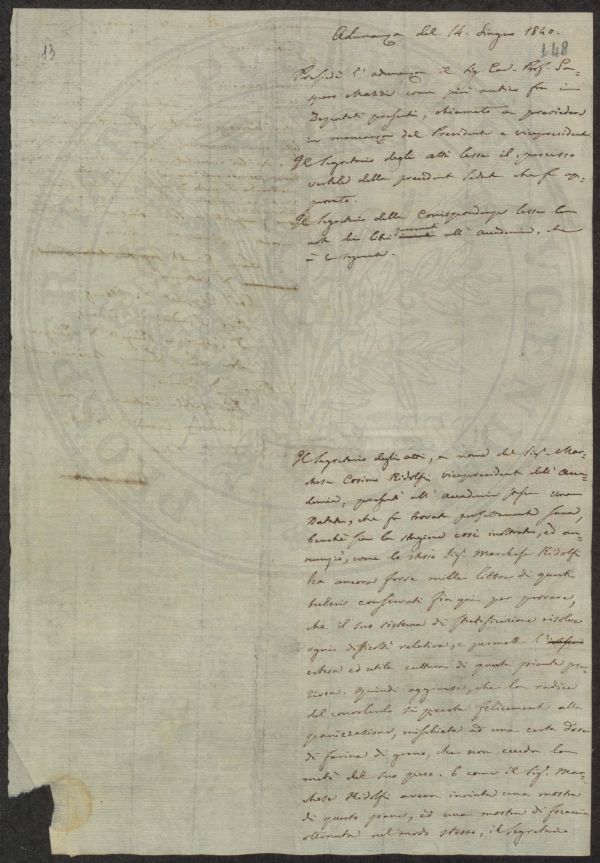 13
148
Adunanza del 14. Giugno 1840.
Presiedè l'adunanza il Sig. Cav. Prof. Gas-
pero Mazzi come più antico fra i
Deputati presenti, chiamato a presiedere
in mancanza del Presidente e vicepresidente
Il Segretario degli atti lesse il processo
verbale della precedente Seduta che fu ap-
provato.
Il Segretario delle Corrispondenze lesse la
nota dei libri pervenuti all'Accademia, che
è la seguente.
Il Segretario degli atti, a nome del Sig. Mar-
chese Cosimo Ridolfi vicepresidente dell'Acca-
demia, presentò all'Accademia una
Batata, che fu trovata perfettamente sana,
benchè sia la stagione così inoltrata, ed an-
nunziò, come lo stesso Sig. Marchese Ridolfi
ha ancora forse mille libbre di questi
tuberi conservati fin qui per provare,
che il suo sistema di stratificazione risolve
ogni difficoltà relativa, e permette l'
estesa ed utile cultura di questa pianta pre-
ziosa. Quindi aggiunse, che la radice
del convolvolo si presta felicemente alla
panizzazione, mischiata ad una certa dose
di farina di grano, che non ecceda la
metà del suo peso. E come il Sig. Mar-
chese Ridolfi aveva inviato una mostra
di questo pane, ed una mostra di focaccia
ottenuta nel modo stesso, il Segretario